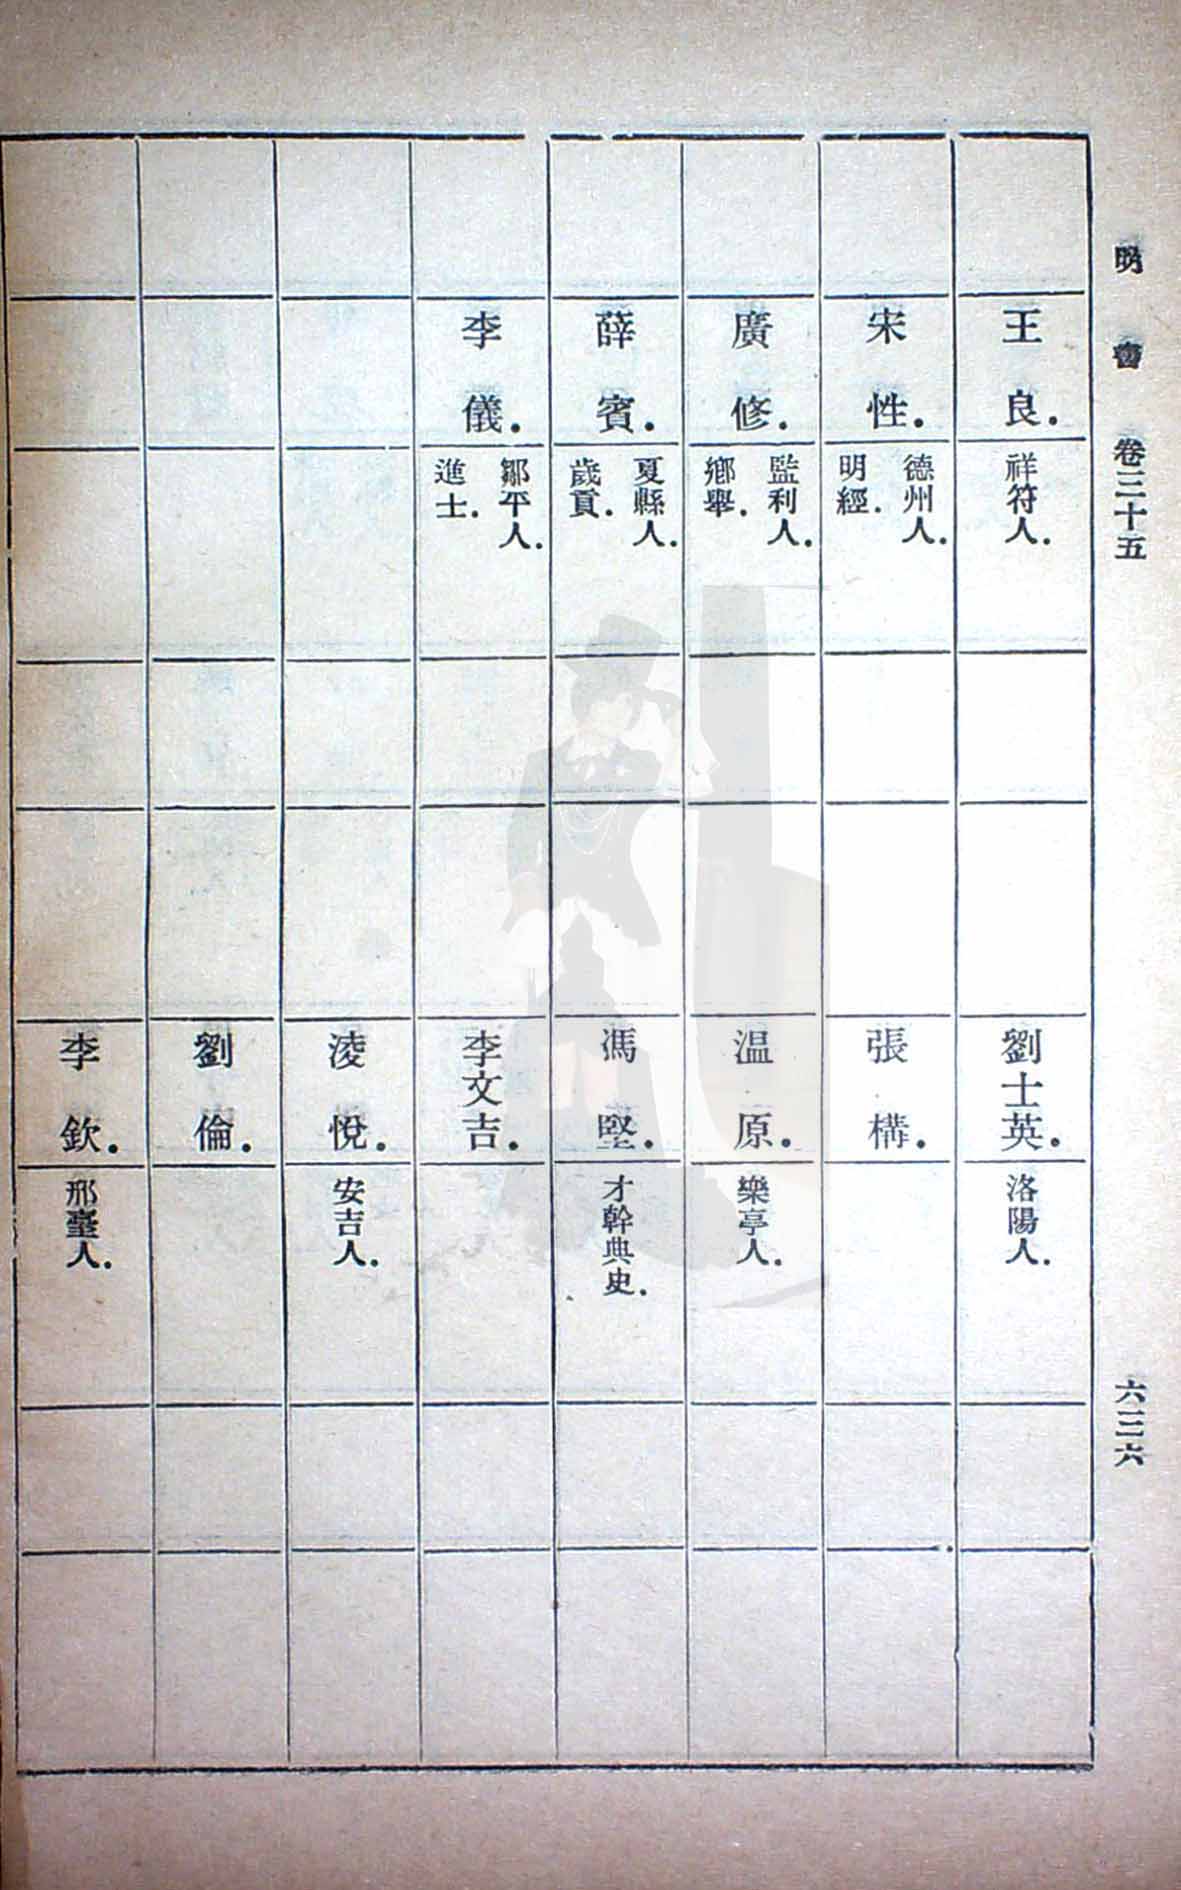 明書 卷三十五 六三六
王良．
祥符人．
劉士英．
洛陽人．
宋性．
德州人．
明經．
張構．
廣修．
監利人．
鄉舉．
温原．
樂亭人．
薛賓．
夏縣人．
歲貢．
馮堅．
才幹典史．
李儀．
鄒平人．
進士．
李文吉．
淩悅．
安吉人．
劉倫．
李欽．
邢臺人．